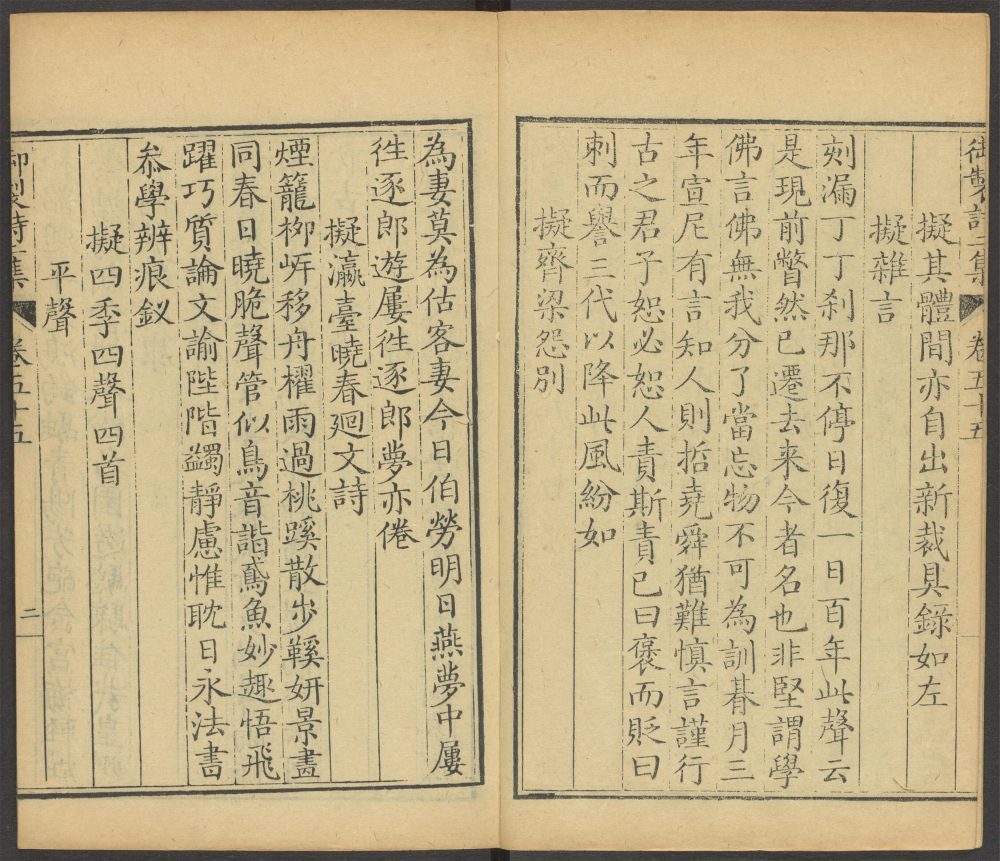 御製詩二集 卷五十五
擬其體間亦自出新裁具錄如左
擬雜言
刻漏丁丁刹那不停日復一日百年此聲云
是現前瞥然已遷去来今者名也非堅謂學
佛言佛無我分了當忘物不可為訓朞月三
年宣尼有言知人則哲堯舜猶難慎言謹行
古之君子恕必恕人責斯責已曰褒而貶曰
刺而譽三代以降此風紛如
擬齊梁怨別
為妻莫為估客妻今日伯勞明日燕夢中屢
徃逐郎遊屢徃逐郎夢亦倦
擬瀛臺曉春廻文詩
煙籠栁岍移舟櫂雨過桃蹊散步鞵妍景畵
同春日曉脆聲管似鳥音諧鳶魚妙趣悟飛
躍巧質論文諭陛階蠲靜慮惟耽日永法書
叅學辨痕釵
擬四季四聲四首
平聲
御製詩二集 卷五十五 二